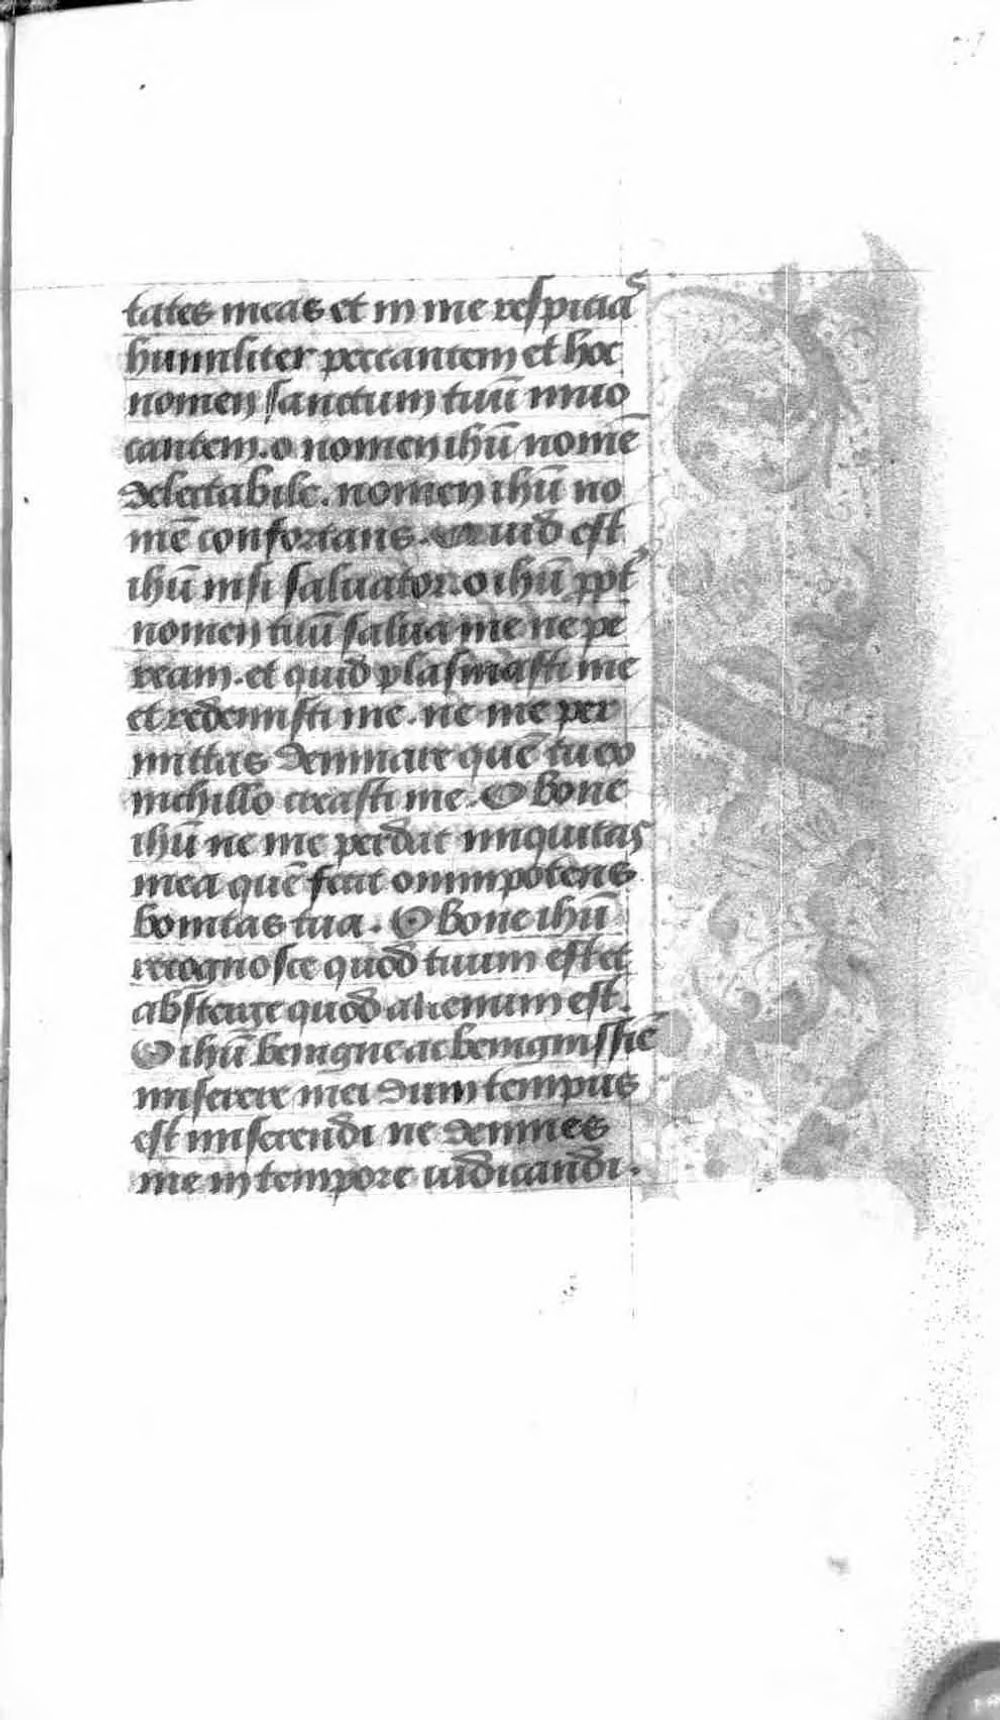 tates meas et in me respicias
humiliter peccantem et hoc
nomen sanctum tuū inuo
cantem. o nomen ihū nomē
delectabile. nomen ihū no
mē confortans. Quid est
ihū nisi saluator. o ihū ppt̄
nomen tuū salua me ne pe
ream. et quid plasmasti me
et redemisti me. ne me per
mittas demnare quē tu ex
nichillo creasti me. O bone
ihū ne me perdat iniquitas
mea quē fecit omnipotens
bonitas tua. O bone ihū
recognosce quod tuum est et
absterge quod alienum est.
O ihū benigne ac benignissīe
miserere mei dum tempus
est miserendi ne demnes
me in tempore iudicandi.